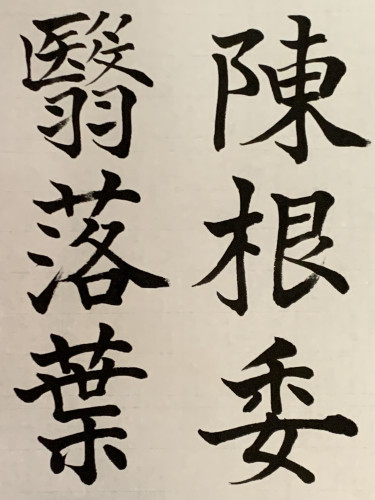 陳根委
翳落葉